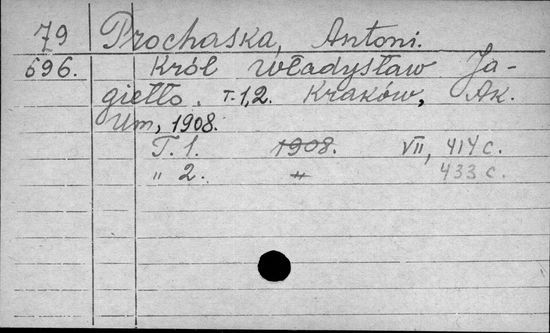 79 Prochaska, Antoni.
696. Król Władysław Ja-
giełło. T. 1,2. Kraków, Ak.
Um, 1908.
T. 1. 1908. VII, 414 c.
" 2. " 433 c.